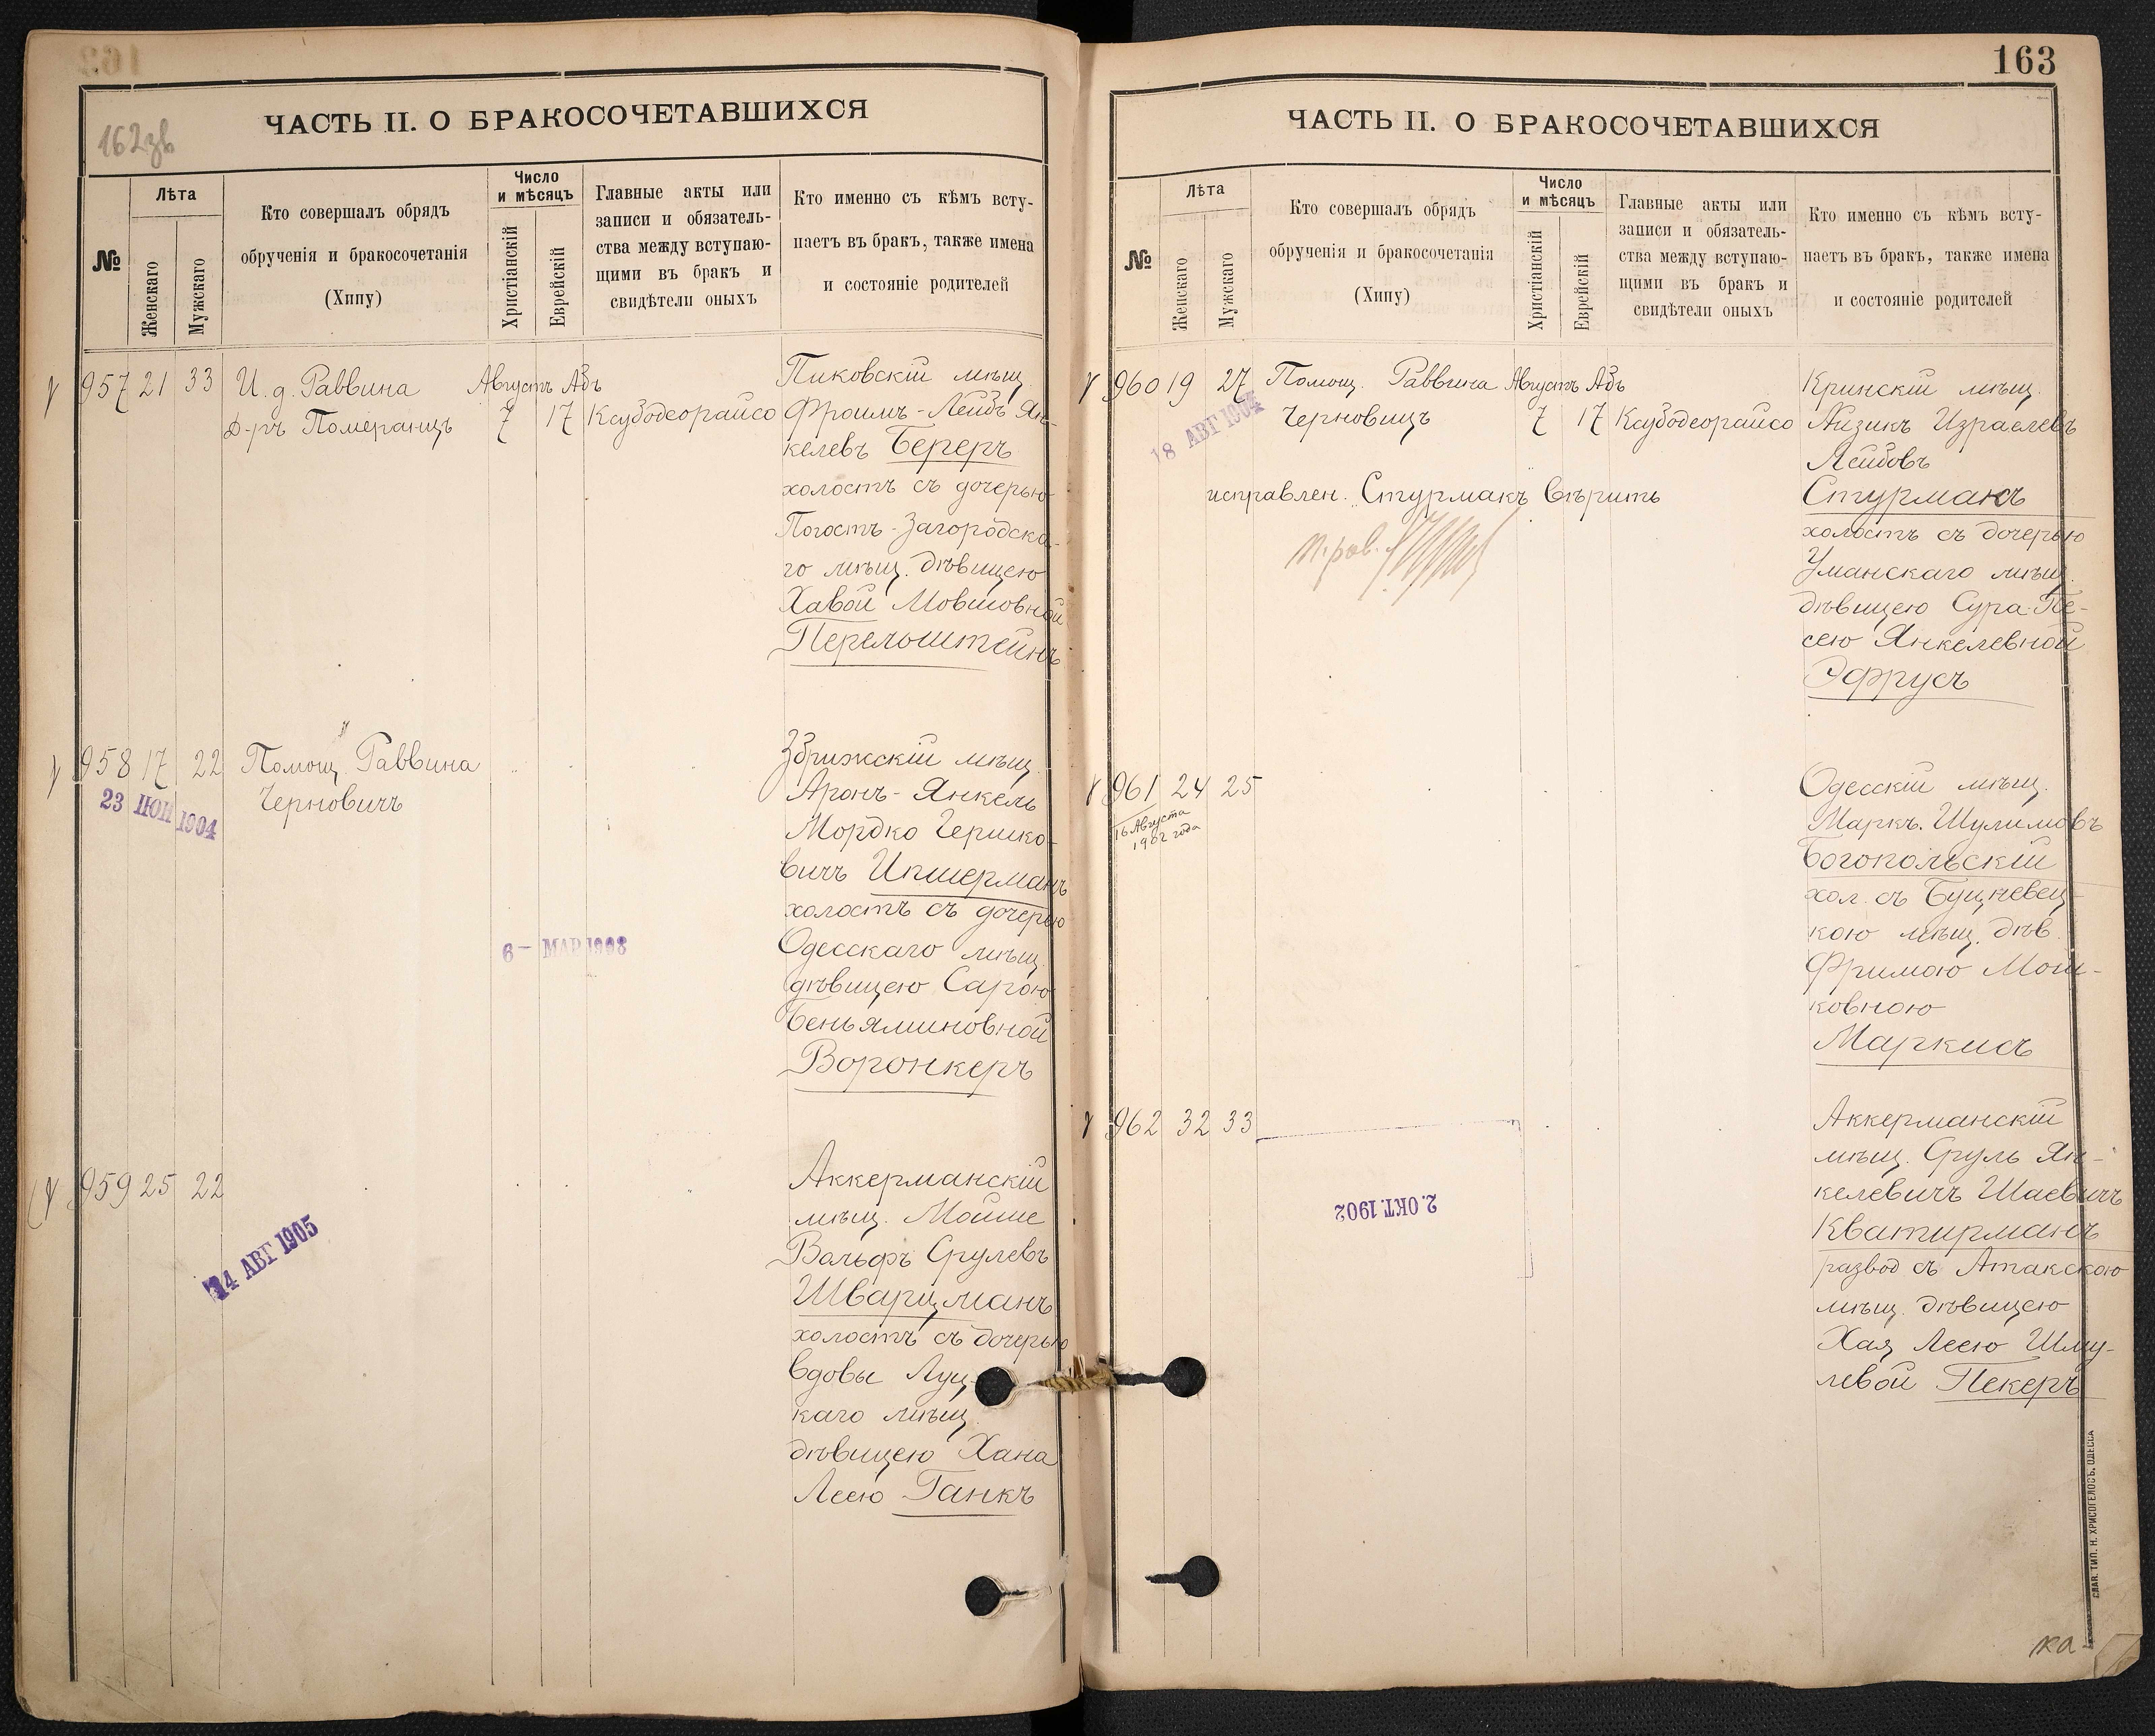 162зв
ЧАСТЬ II. О БРАКОСОЧЕТАВШИХСЯ
№
Лѣта
Женскаго
Мужскаго
Кто совершалъ обрядъ
обрученія и бракосочетанія
(Хипу)
Число
и мѣсяцъ
Христіанскій
Еврейскій
Главные акты или
записи и обязатель-
ства между вступаю-
щими въ бракъ и
свидѣтели оныхъ
Кто именно съ кѣмъ всту-
паетъ въ бракъ, также имена
и состояніе родителей
957 21 33
И. д. Раввина
Д-ръ Померанцъ
Августъ Абъ
7 17 Ксубодеорайсо
Пиковскій мѣщ.
Фроимъ-Лейбъ Ян-
келевъ Береръ
холостъ съ дочерью
Погостъ-Загородска-
го мѣщ. дѣвицею
Хавой Мовшовной
Перельштейнъ
958 17 22
Помощ. Раввина
Черновичъ
23 ІЮН 1904
6 - МАР 1908
Збрижскій мѣщ.
Аронъ-Янкель
Мордко Гершко-
вичъ Ипшерманъ
холостъ съ дочерью
Одесскаго мѣщ.
дѣвицею Сарою
Беньяминовной
Воронкеръ
959 25 22
14 АВГ 1905
Аккерманскій
мѣщ. Мойше
Вольфъ Срулевъ
Шварцманъ
холостъ съ дочерью
вдовы Луц-
каго мѣщ.
дѣвицею Хана
Леею Ганкъ
163
ЧАСТЬ II. О БРАКОСОЧЕТАВШИХСЯ
№
Лѣта
Женскаго
Мужскаго
Кто совершалъ обрядъ
обрученія и бракосочетанія
(Хипу)
Число
и мѣсяцъ
Христіанскій
Еврейскій
Главные акты или
записи и обязатель-
ства между вступаю-
щими въ бракъ и
свидѣтели оныхъ
Кто именно съ кѣмъ всту-
паетъ въ бракъ, также имена
и состояніе родителей
960 19 27
18 АВГ 1904
Помощ. Раввина
Черновицъ
Августъ Абъ
7 17 Ксубодеорайсо
исправлен. Стурмакъ вѣрить
п. рав.
Кринскій мѣщ.
Айзикъ Израелевъ
Лейбовъ
Стурмакъ
холостъ съ дочерью
Уманскаго мѣщ.
дѣвицею Сура-Пе-
сею Янкелевной
Эфрусъ
961 24 25
16 Августа
1902 года
Одесскій мѣщ.
Маркъ. Шулимовъ
Богопольскій
хол. съ Буцневец-
кою мѣщ. дѣв.
Фримою Мош-
ковною
Маркисъ
962 32 33
2. ОКТ. 1902
Аккерманскій
мѣщ. Сруль Ян-
келевичъ Шаевичъ
Кватирманъ
развод съ Атакскою
мѣщ. дѣвицею
Хая Леею Шму-
левой Пекеръ
СЛАВ. ТИП. Н. ХРИСОГЕЛОСЪ, ОДЕССА